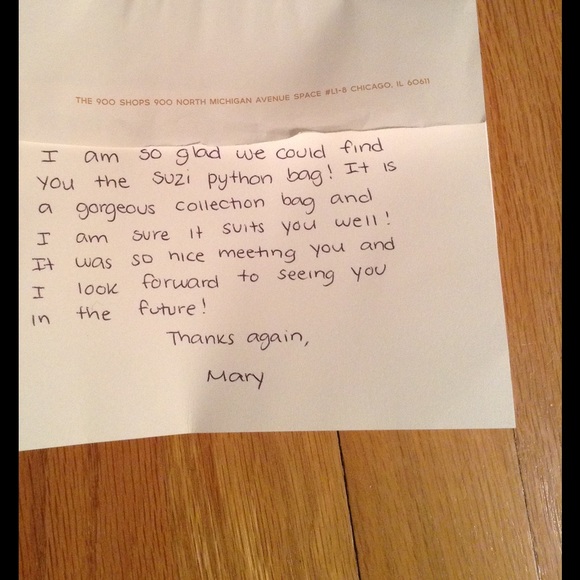 THE 900 SHOPS 900 NORTH MICHIGAN AVENUE SPACE #L1-8 CHICAGO, IL 60611
I am so glad we could find
you the suzi python bag! It is
a gorgeous collection bag and
I am sure it suits you well!
It was so nice meeting you and
I look forward to seeing you
in the future!
Thanks again,
Mary